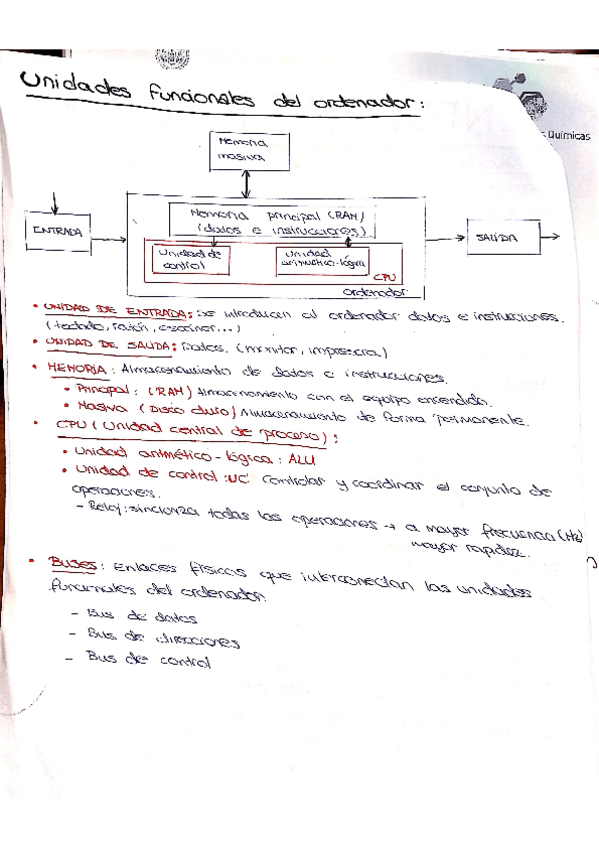 Unidades funcionales del ordenador:
Químicas
Memoria
masiva
Memoria principal (RAM)
(datos e instrucciones)
ENTRADA
SALIDA
Unidad de
control
Unidad
aritmético-lógica
CPU
ordenador
• UNIDAD DE ENTRADA: Se introducen al ordenador datos e instrucciones.
(teclado, ratón, escáner...)
• UNIDAD DE SALIDA: Datos. (monitor, impresora)
• MEMORIA: Almacenamiento de datos e instrucciones.
• Principal: (RAM) Almacenamiento con el equipo encendido.
• Masiva (Disco duro) Almacenamiento de forma permanente.
• CPU (Unidad central de proceso):
• Unidad aritmético-lógica: ALU
• Unidad de control: UC Controlar y coordinar el conjunto de
operaciones.
- Reloj: sincroniza todas las operaciones → a mayor frecuencia (Hz)
mayor rapidez.
• Buses: Enlaces físicos que interconectan las unidades
funcionales del ordenador.
- Bus de datos
- Bus de direcciones
- Bus de control